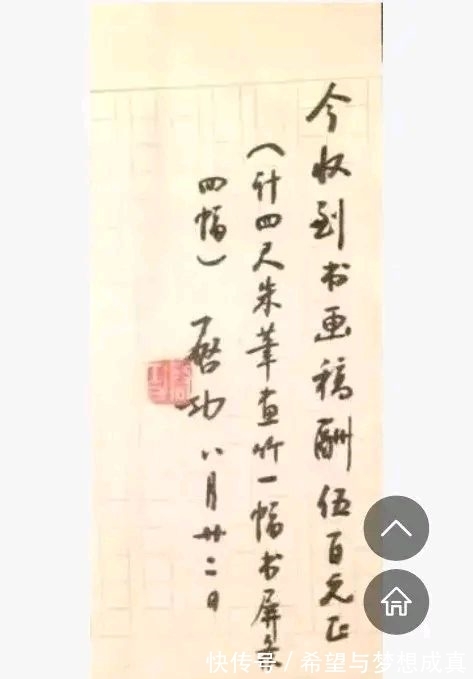 今收到书画稿酬伍百元正
（计四尺朱笔画竹一幅书屏条
四幅）
启功 八月廿二日
快传号 / 希望与梦想成真